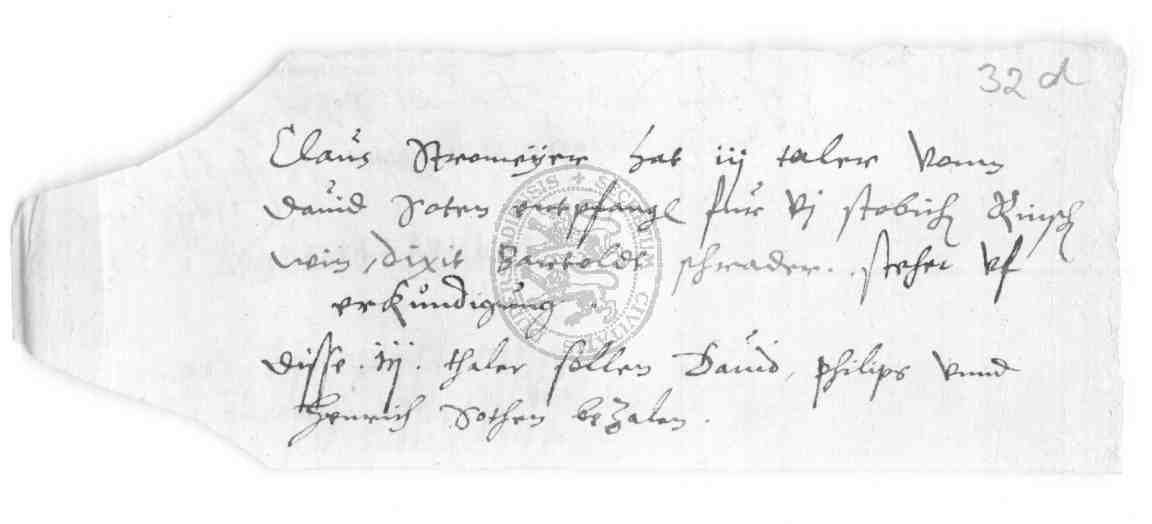 32 d
Claus Stromeÿer hat iij taler vonn
Dauid Soten entpfangl fur vj stobich Rinsch
win, dixit Bartoldt schrader. stehet vf
erkundigung.
Disse .iij. thaler sollen Dauid, philips vnnd
Henrich Sothen bezalen.